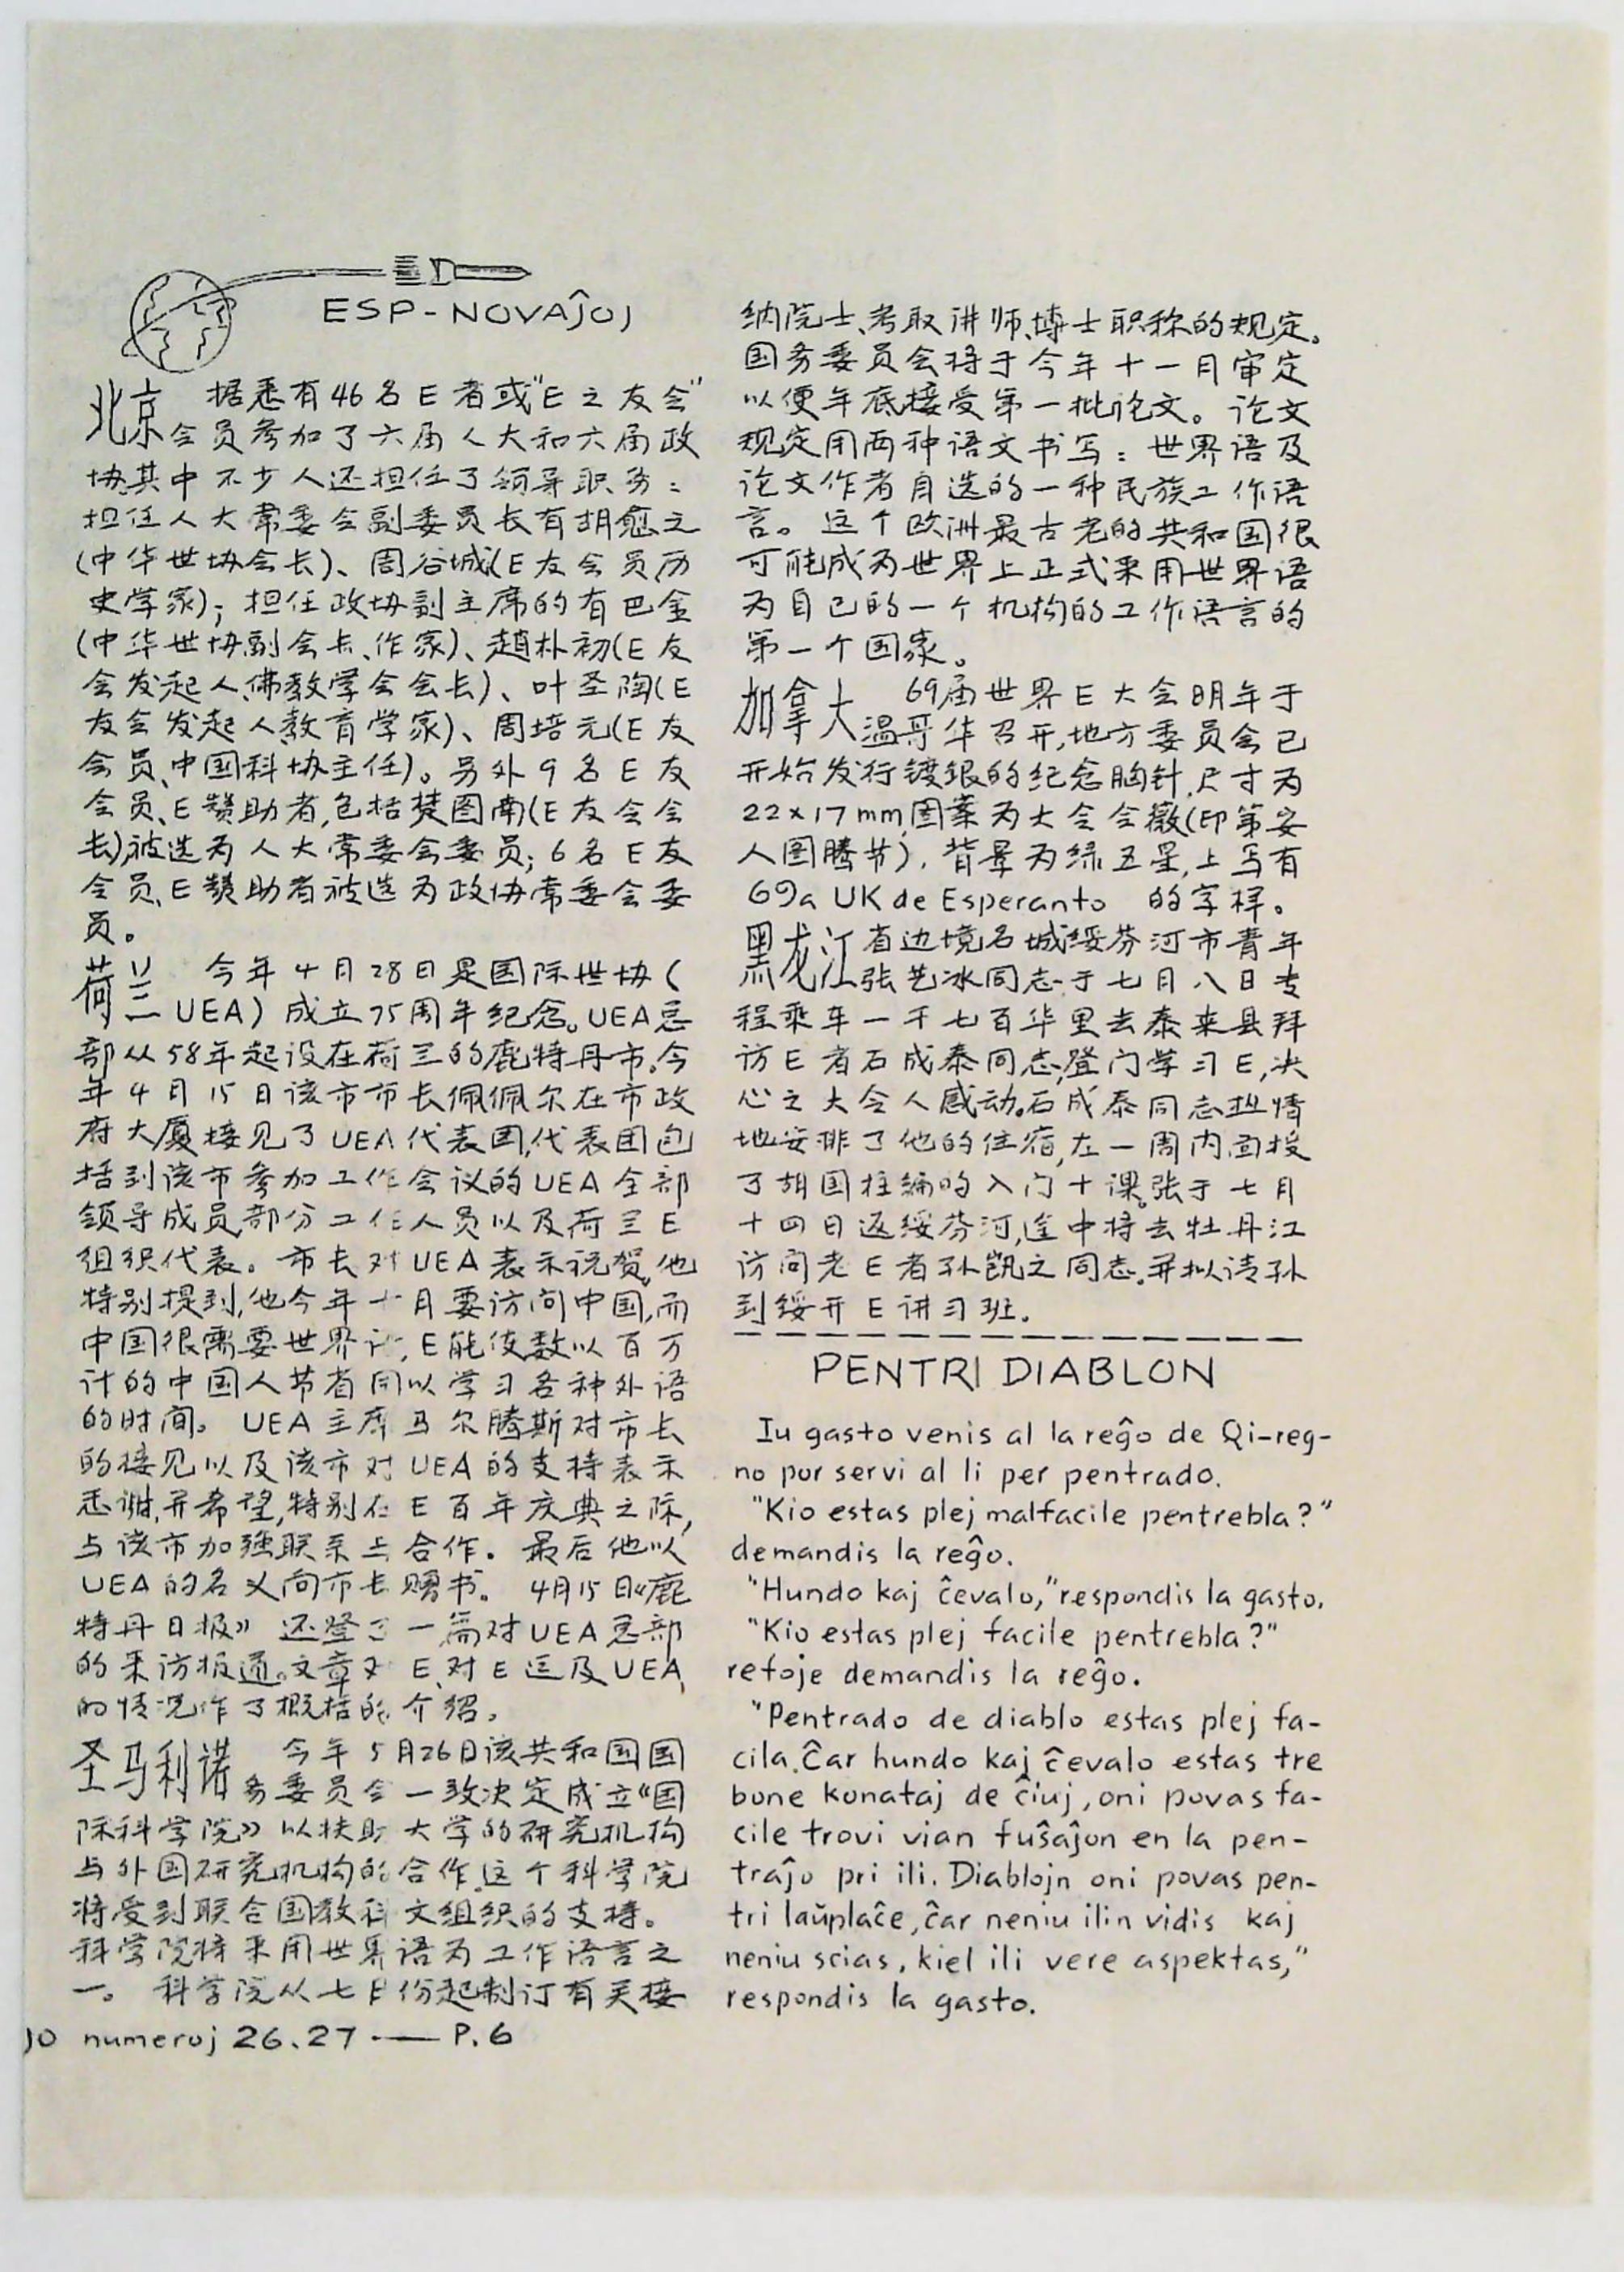 ESP-NOVAĴOJ
北京 据悉有46名E者或"E之友会"
会员参加了六届人大和六届政
协其中不少人还担任了领导职务:
担任人大常委会副委员长有胡愈之
(中华世协会长)、周谷城(E友会员,历
史学家);担任政协副主席的有巴金
(中华世协副会长、作家)、趙朴初(E友
会发起人,佛教学会会长)、叶圣陶(E
友会发起人,教育学家)、周培元(E友
会员、中国科协主任)。另外9名E友
会员、E赞助者,包括楚图南(E友会会
长),被选为人大常委会委员;6名E友
会员、E赞助者被选为政协常委会委
员。
荷兰 今年4月28日是国际世协(
UEA)成立75周年纪念。UEA总
部从58年起设在荷兰的鹿特丹市。今
年4月15日该市市长佩佩尔在市政
府大厦接见了UEA代表团,代表团包
括到该市参加工作会议的UEA全部
领导成员,部分工作人员以及荷兰E
组织代表。市长对UEA表示祝贺。他
特别提到,他今年十月要访问中国,而
中国很需要世界语,E能使数以百万
计的中国人节省用以学习各种外语
的时间。UEA主席马尔腾斯对市长
的接见以及该市对UEA的支持表示
感谢,并希望,特别在E百年庆典之际,
与该市加强联系与合作。最后他以
UEA的名义向市长赠书。4月15日《鹿
特丹日报》还登了一篇对UEA总部
的采访报道。文章对E、对E运及UEA
的情况作了概括的介绍。
圣马利诺 今年5月26日该共和国国
务委员会一致决定成立《国
际科学院》以扶助大学的研究机构
与外国研究机构的合作。这个科学院
将受到联合国教科文组织的支持。
科学院将采用世界语为工作语言之
一。科学院从七月份起制订有关接
纳院士、考取讲师、博士职称的规定。
国务委员会将于今年十一月审定
以便年底接受第一批论文。论文
规定用两种语文书写:世界语及
论文作者自选的一种民族工作语
言。这个欧洲最古老的共和国很
可能成为世界上正式采用世界语
为自己的一个机构的工作语言的
第一个国家。
加拿大 69届世界E大会明年于
温哥华召开,地方委员会已
开始发行镀银的纪念胸针,尺寸为
22×17mm,图案为大会会徽(印第安
人图腾节),背景为绿五星,上写有
69a UK de Esperanto 的字样。
黑龙江省边境名城绥芬河市青年
张艺冰同志于七月八日专
程乘车一千七百华里去泰来县拜
访E者石成泰同志,登门学习E,决
心之大令人感动。石成泰同志热情
地安排了他的住宿,在一周内面授
了胡国柱编的入门十课。张于七月
十四日返绥芬河,途中将去牡丹江
访问老E者孙凯之同志。并拟请孙
到绥开E讲习班.
PENTRI DIABLON
Iu gasto venis al la reĝo de Qi-reg-
no por servi al li per pentrado.
"Kio estas plej malfacile pentrebla?"
demandis la reĝo.
"Hundo kaj ĉevalo," respondis la gasto.
"Kio estas plej facile pentrebla?"
refoje demandis la reĝo.
"Pentrado de diablo estas plej fa-
cila. Ĉar hundo kaj ĉevalo estas tre
bone konataj de ĉiuj, oni povas fa-
cile trovi vian fuŝaĵon en la pen-
traĵo pri ili. Diablojn oni povas pen-
tri laŭplaĉe, ĉar neniu ilin vidis kaj
neniu scias, kiel ili vere aspektas,"
respondis la gasto.
JO numeroj 26、27 — P.6